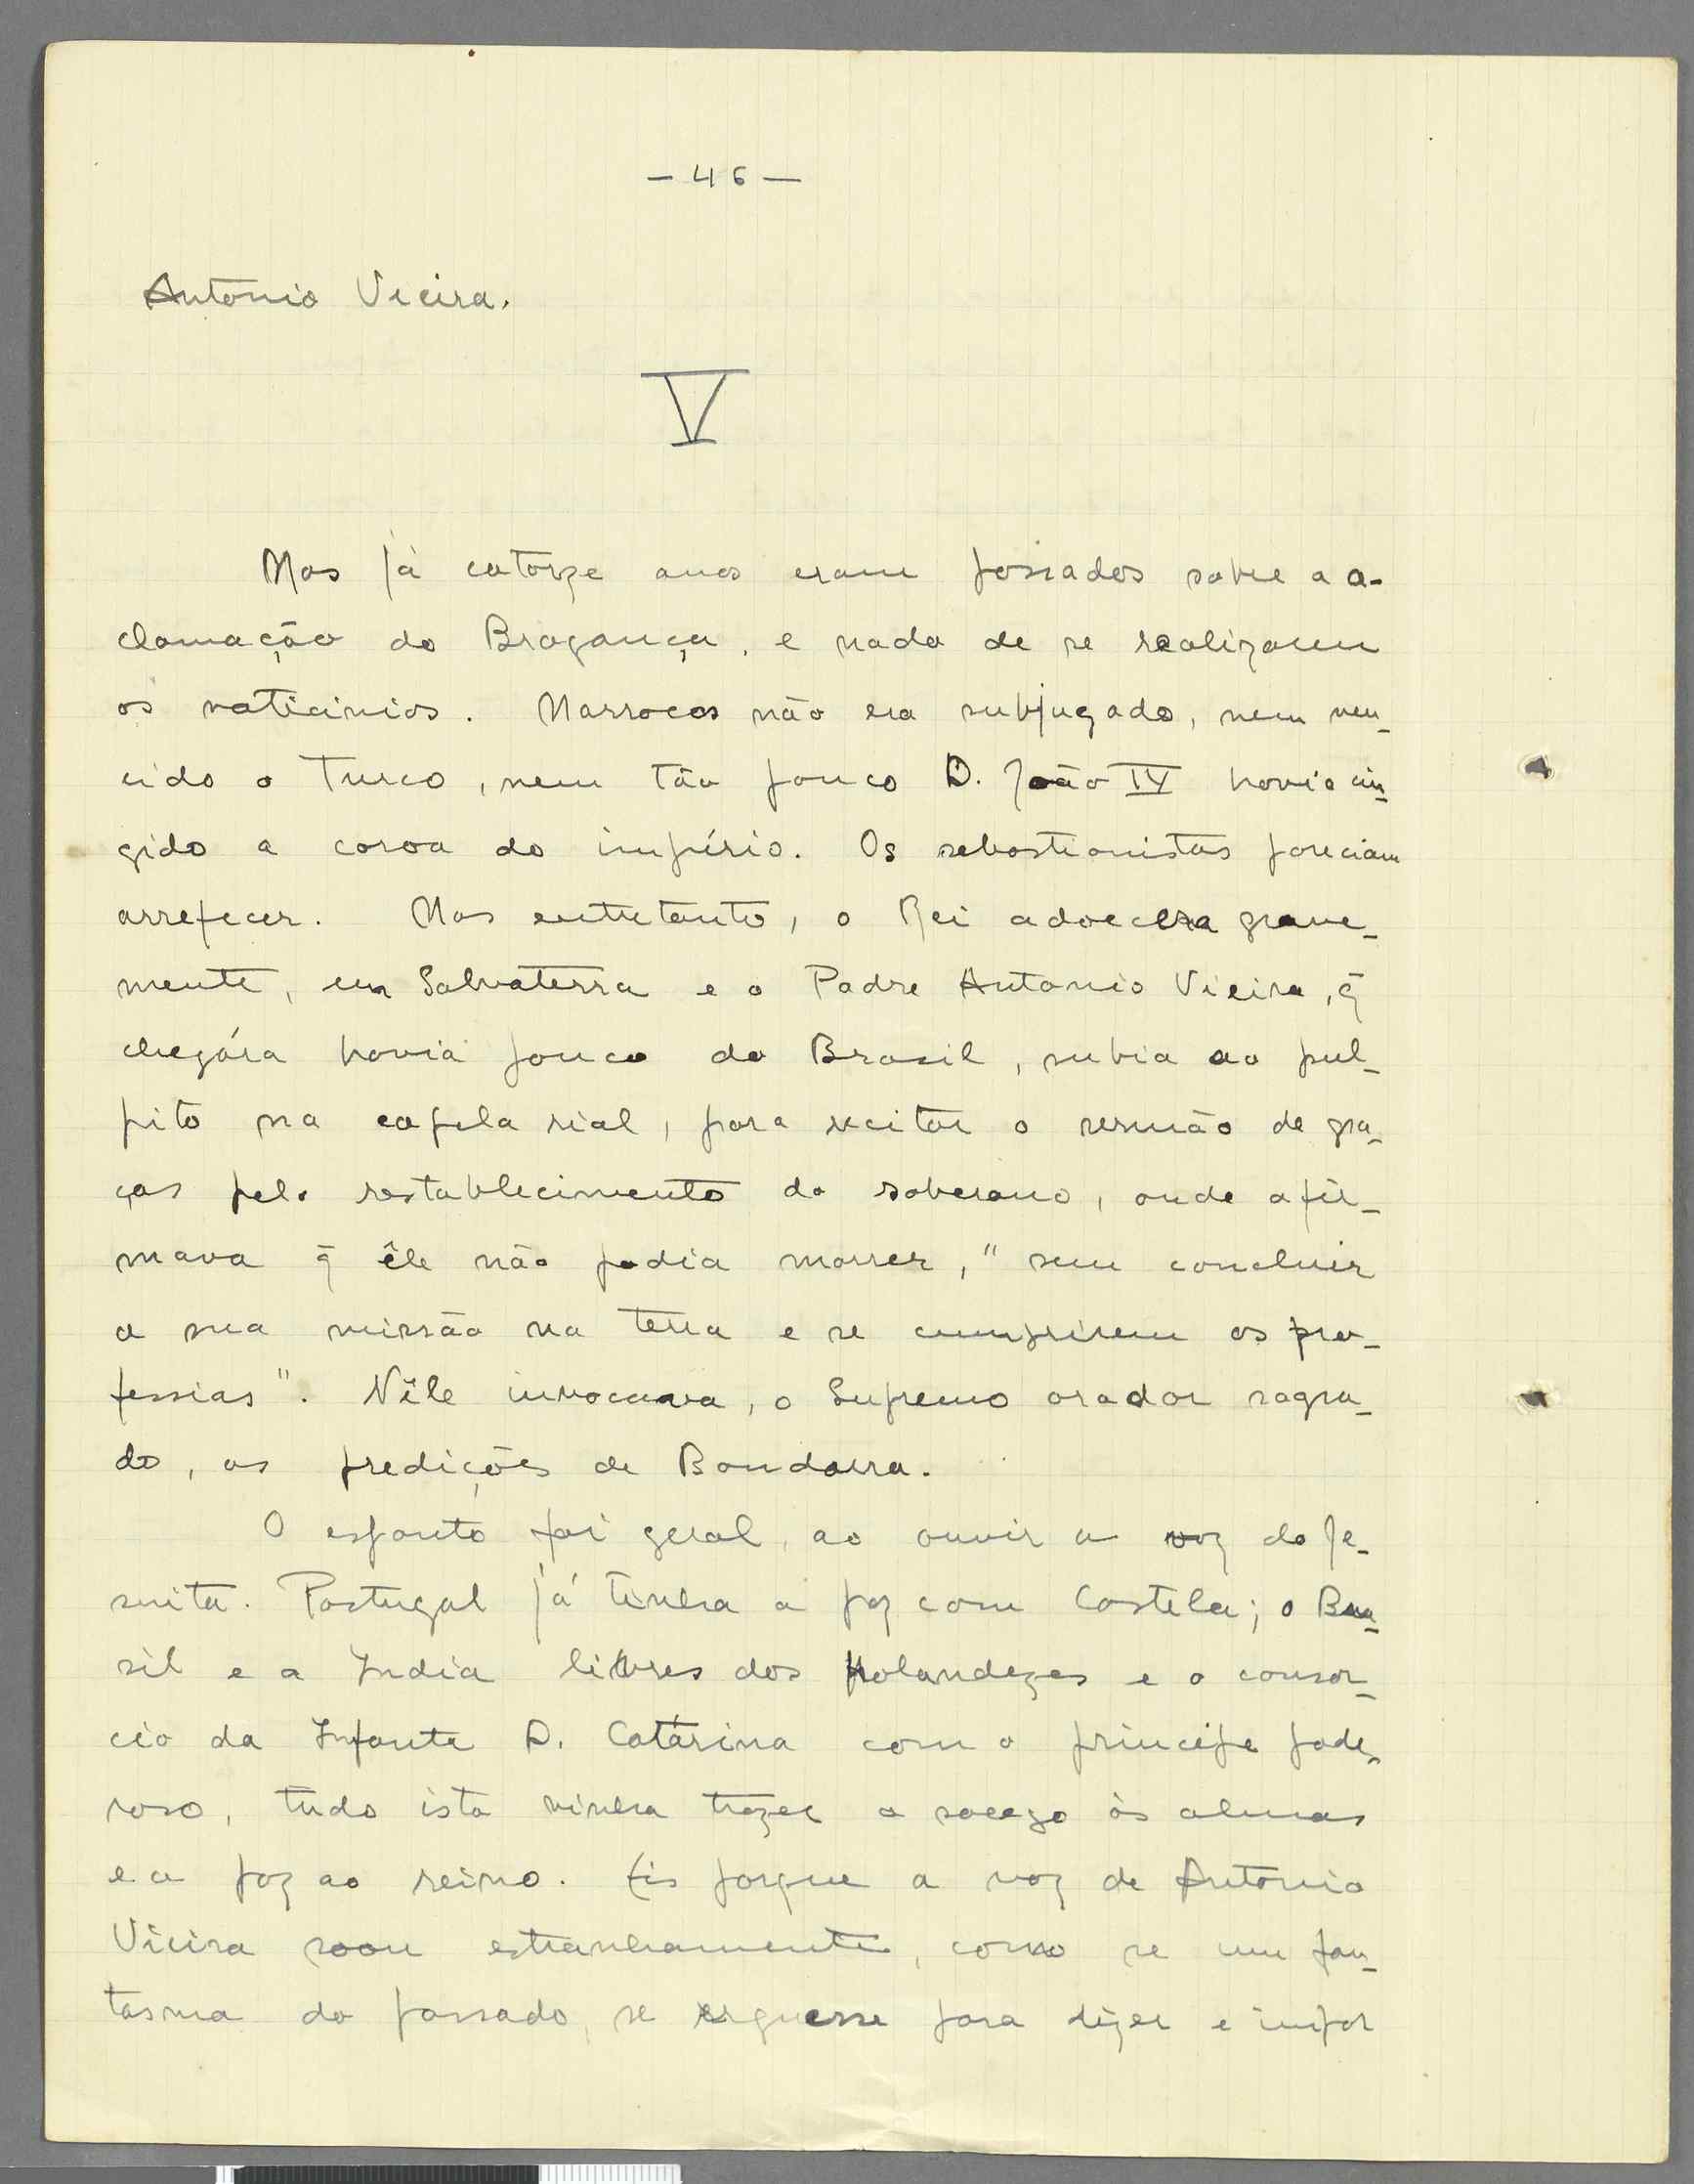 - 46 -
Antonio Vieira.
V
Mas já catorze anos eram passados sobre a a-
clamação do Bragança, e nada de se realizarem
os vaticinios. Marrocos não era subjugado, nem ven-
cido o Turco, nem tão pouco D. João IV havia cin-
gido a coroa do império. Os sebastianistas pareciam
arrefecer. Mas entretanto, o Rei adoecera grave-
mente, em Salvaterra e o Padre Antonio Vieira, q̃
chegára havia pouco do Brasil, subia ao pul-
pito na capela rial, para recitar o sermão de gra-
ças pelo restablecimento do soberano, onde afir-
mava q̃ êle não podia morrer, "sem concluir
a sua missão na terra e se cumprirem as pro-
fessias". Nêle invocava, o Supremo orador sagra-
do, as predições de Bandarra.
O espanto foi geral, ao ouvir a voz do Je-
suita. Portugal já tinha a paz com Castela; o Bra-
sil e a India livres dos Holandezes e o consor-
cio da Infanta D. Catárina com o principe pode-
roso, tudo isto vinha trazer o socego ás almas
e a paz ao reino. Eis porque a voz de Antonio
Vieira soou estranhamente, como se um fan-
tasma do passado, se erguesse para dizer e impor